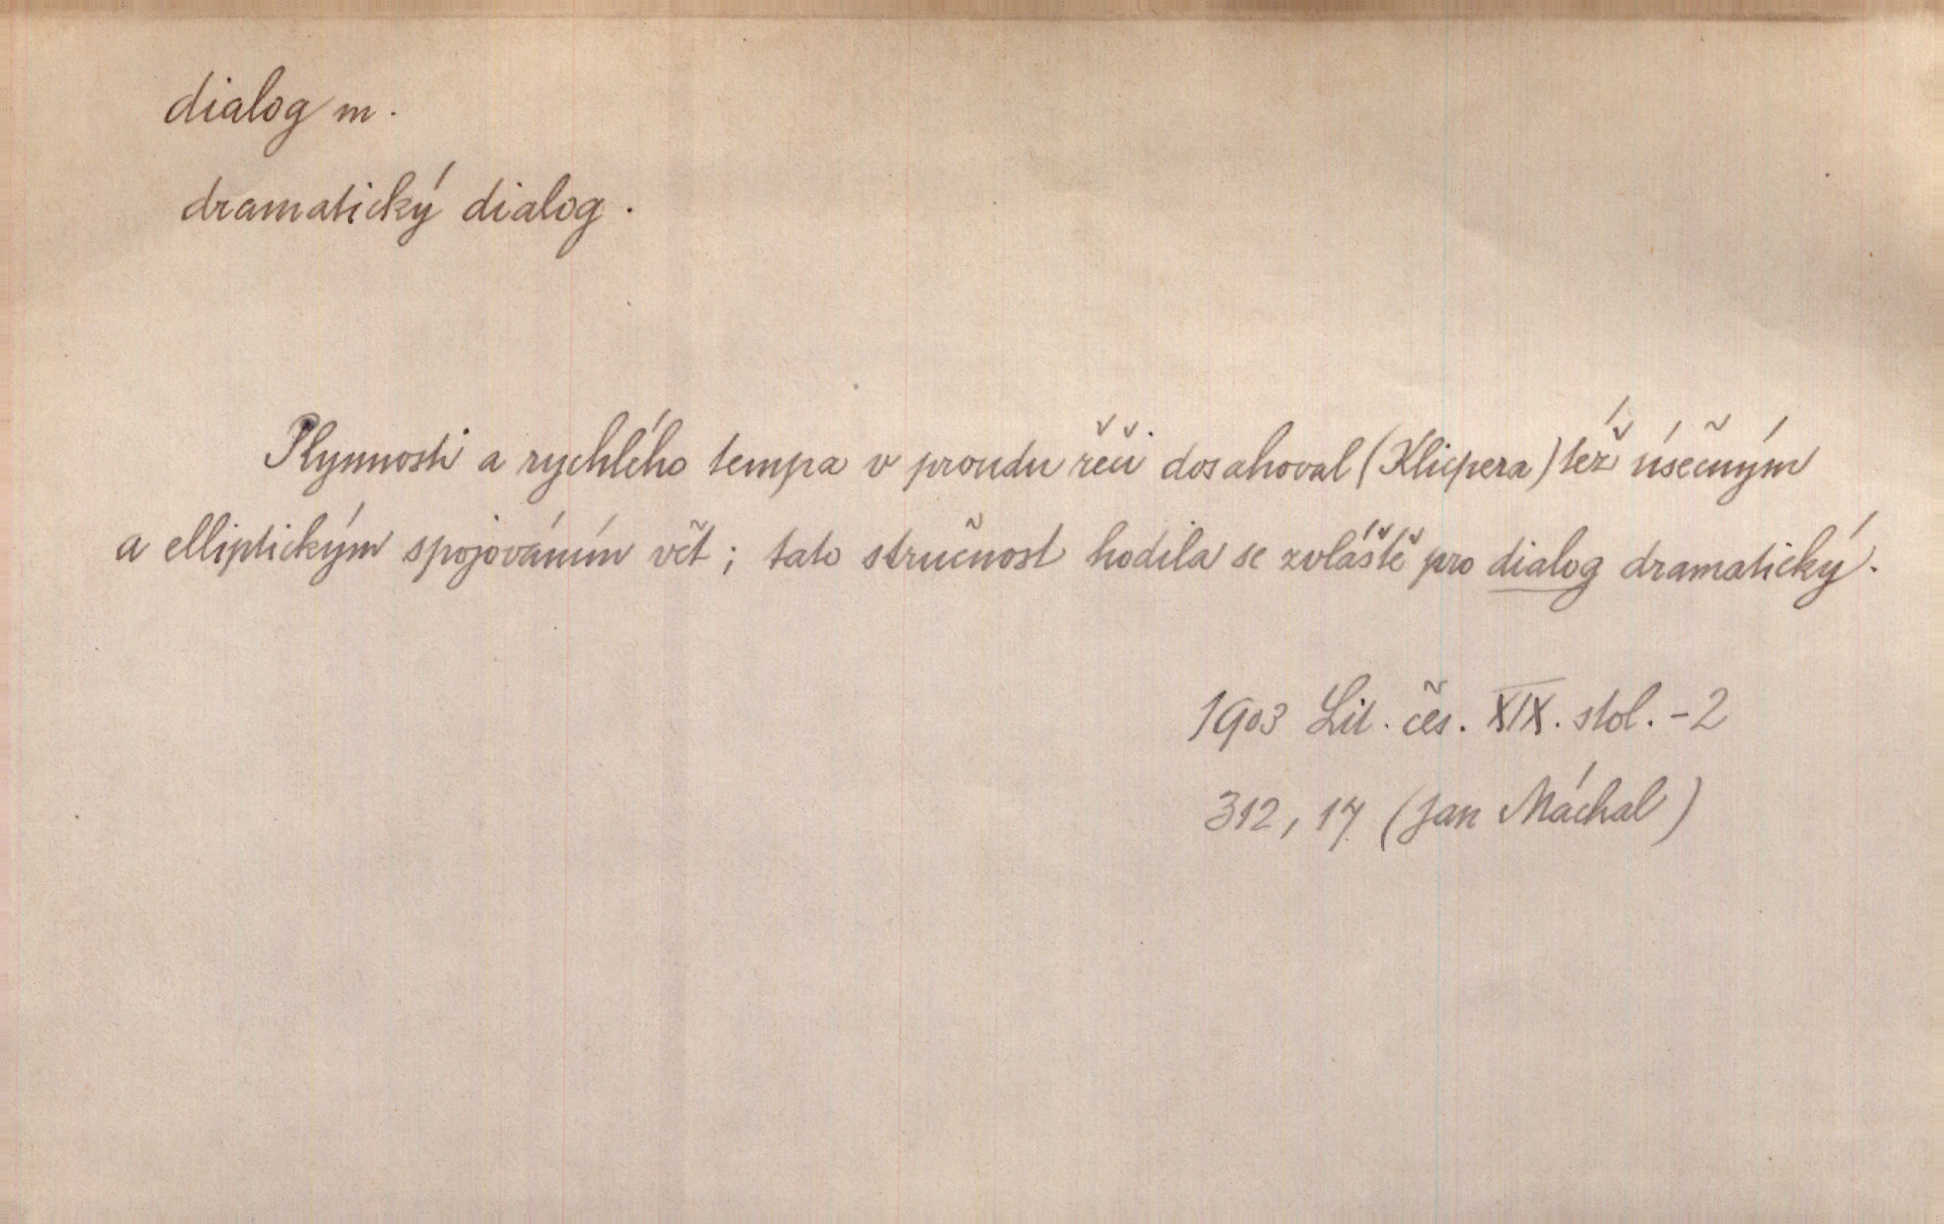 dialog m.
dramatický dialog.
Plynnosti a rychlého tempa v proudu řeči dosahoval (Klicpera) též úsečným
a elliptickým spojováním vět; tato stručnost hodila se zvláště pro dialog dramatický.
1903 Lit. čes. XIX. stol. -2
312, 17 (Jan Máchal)